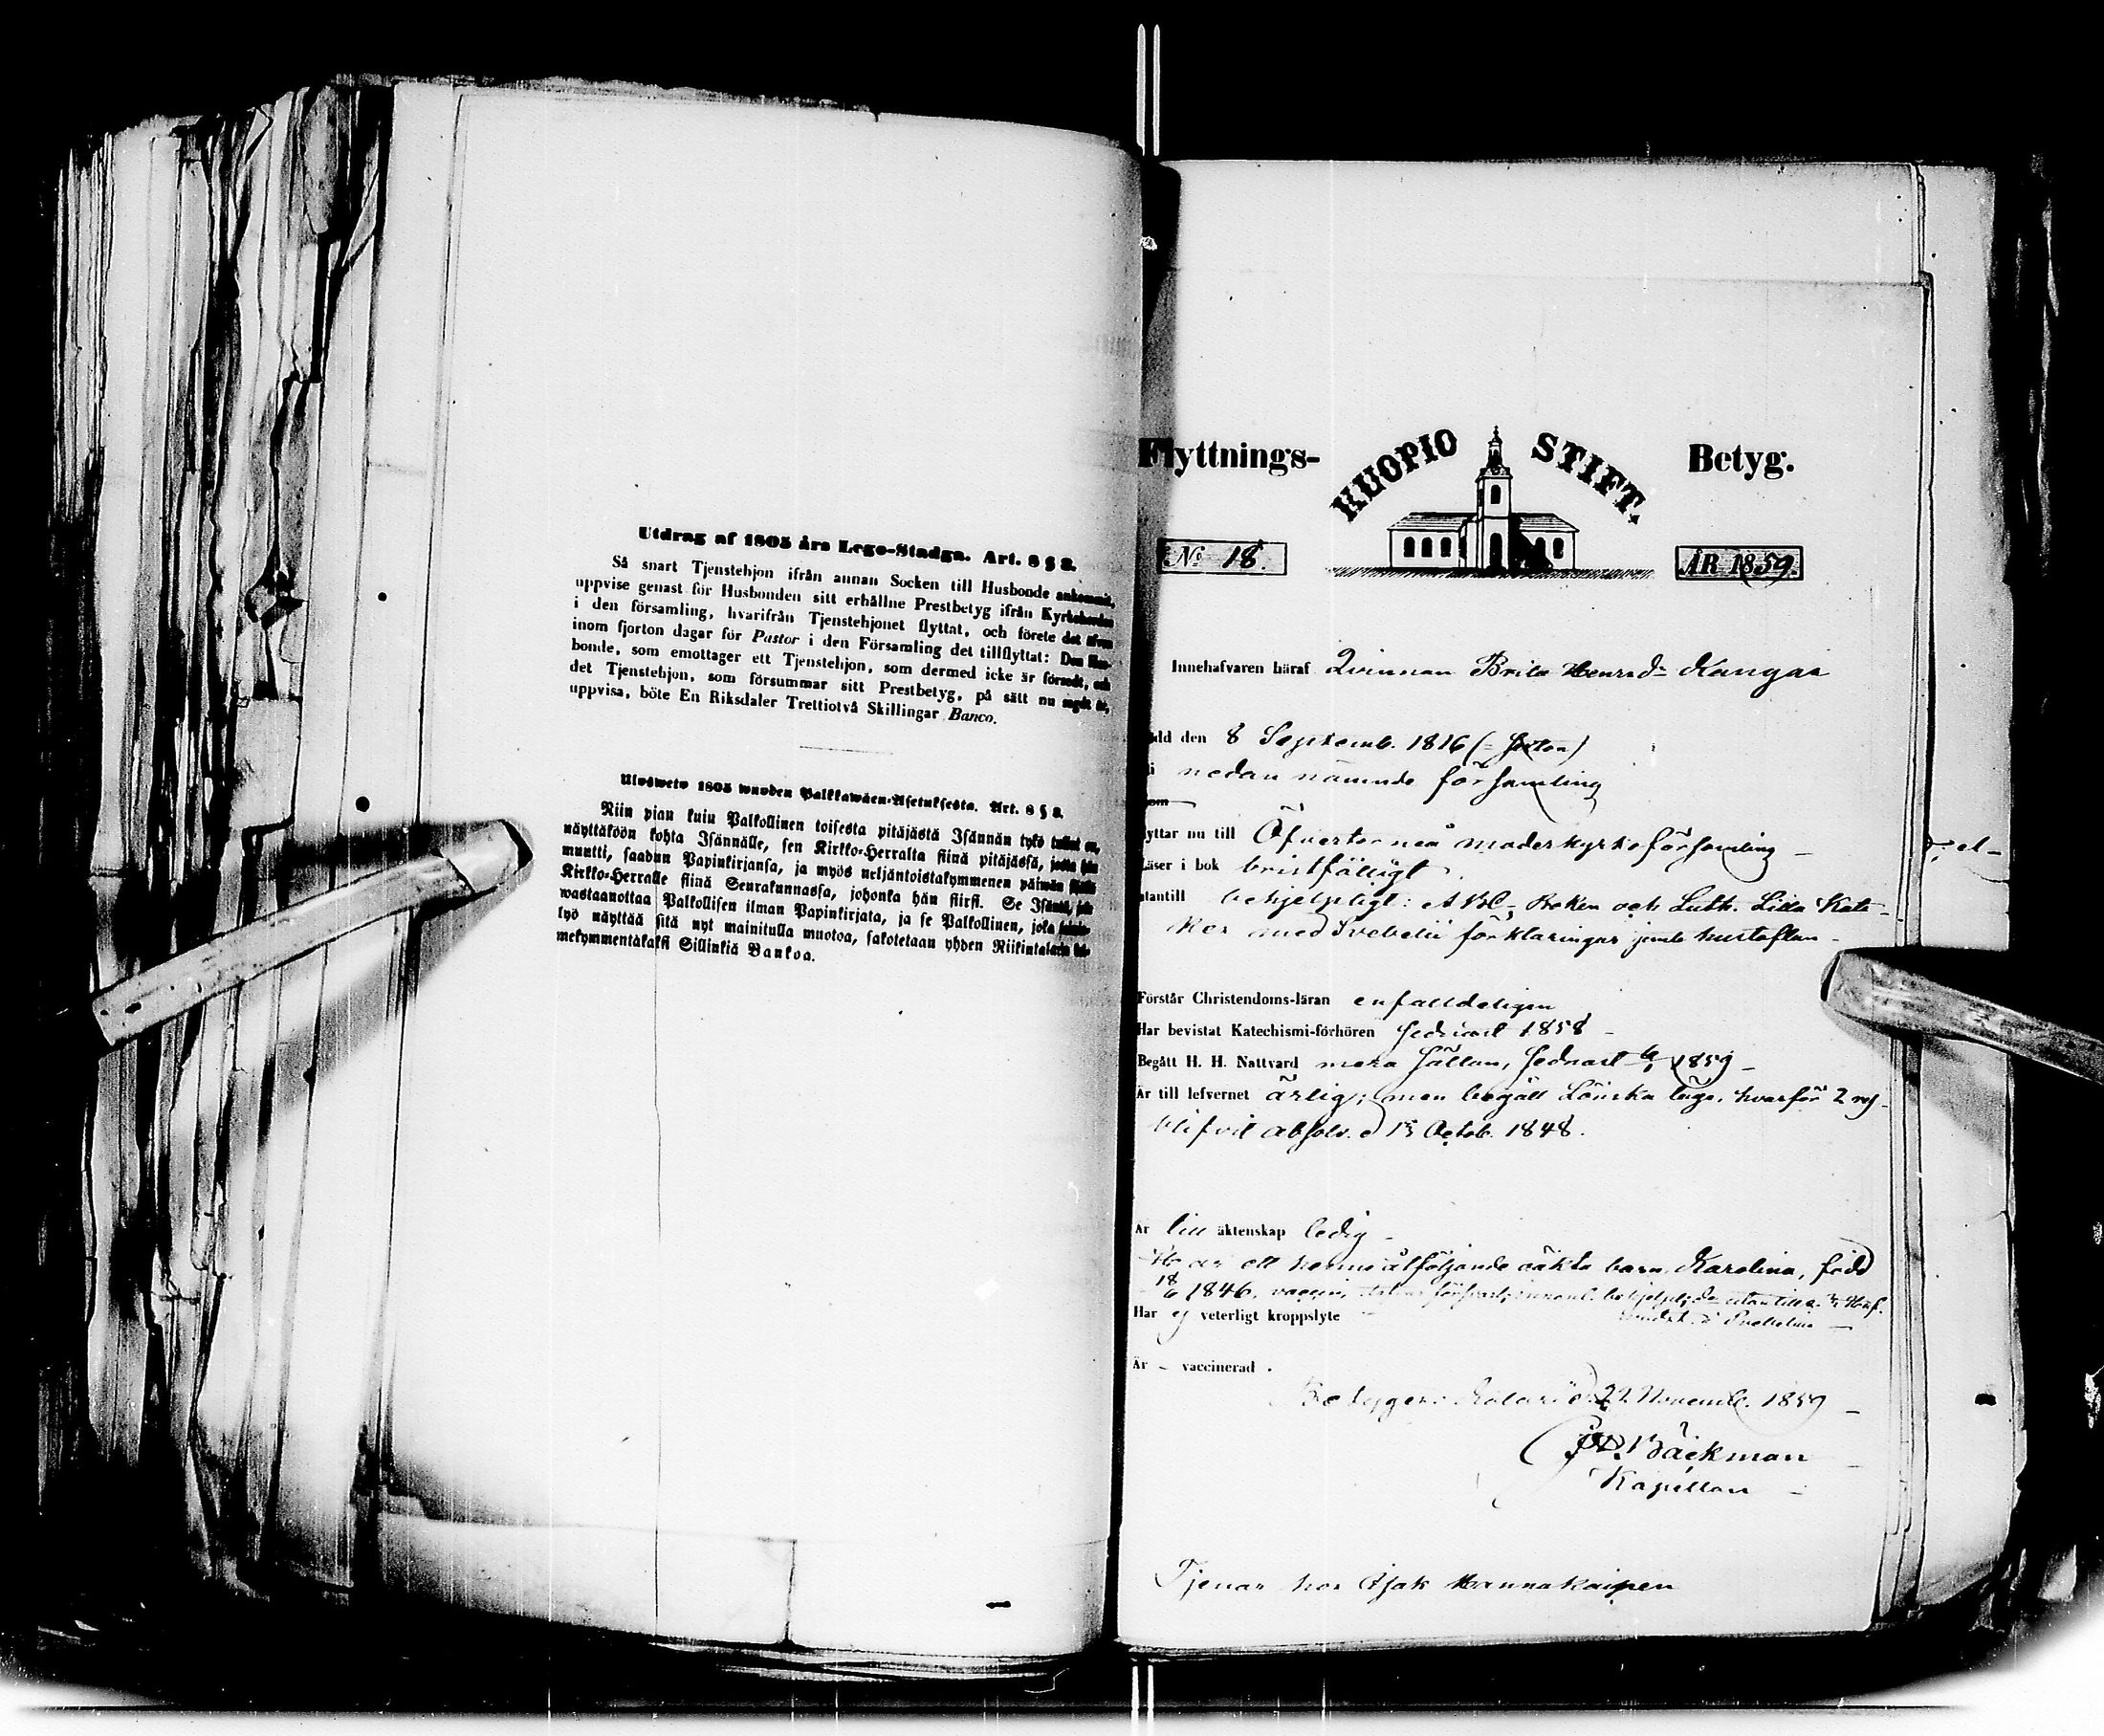 Utdrag af 1805 års Lego-Stadga. Art. 8 § 8.
Så snart Tjenstehjon ifrån annan Socken till Husbonde ankommit,
uppvise genast för Husbonden sitt erhållne Prestbetyg ifrån Kyrkoherden
i den församling, hvarifrån Tjenstehjonet flyttat, och förete det äfven
inom fjorton dagar för Pastor i den Församling det tillflyttat: Den Hus-
bonde, som emottager ett Tjenstehjon, som dermed icke är försedt, och
det Tjenstehjon, som försummar sitt Prestbetyg, på sätt nu sagdt är,
uppvisa, böte En Riksdaler Trettiotvå Skillingar Banco.
Ulosweto 1805 wuoden Palkkawäen-Asetuksesta. Art. 8 § 8.
Niin pian kuin Palkollinen toisesta pitäjästä Isännän tykö tullut on,
näyttäköön kohta Isännälle, sen Kirkko-Herralta siinä pitäjässä, josta hän
muutti, saadun Papinkirjansa, ja myös neljäntoistakymmenen päiwän sisällä
Kirkko-Herralle siinä Seurakunnassa, johonka hän siirsi. Se Isäntä, joka
wastaanottaa Palkollisen ilman Papinkirjata, ja se Palkollinen, joka
lyö näyttää sitä nyt mainitulla muotoa, sakotetaan yhden Riikintalarin
mekymmentäkaksi Sillinkiä Bankoa.
Flyttnings- KUOPIO STIFT. Betyg.
No 18. ÅR 1859.
Innehafvaren häraf Qvinnan Brita Henrsd:r Kangas
född den 8 Septemb. 1816 (= sexton)
i nedan nämnde församling
som
flyttar nu till Öfvertorneå moderkyrkoförsamling
Läser i bok bristfälligt
utantill behjelpligt: ABC-Boken och Luth. Lilla Kate-
kes med Svebelii förklaringar jemte hustaflan
Förstår Christendoms-läran enfalldeligen
Har bevistat Katechismi-förhören sednast 1858
Begått H. H. Nattvard mera sällan, sednast 1859
Är till lefvernet ärlig; men begått Lönska läge, hvarför 2 rg
blifvit absolv. d 15 Octob. 1848.
Är till äktenskap ledig
Har ett henne åtföljande oäkta barn, Karolina, född
18/6 1846, vaccin,
Har ej veterligt kroppslyte
Är - vaccinerad.
Betygar: Kolari d. 22 Novemb. 1859
Bäckman
Kapellan
Tjenar hos Isak Hannukainen